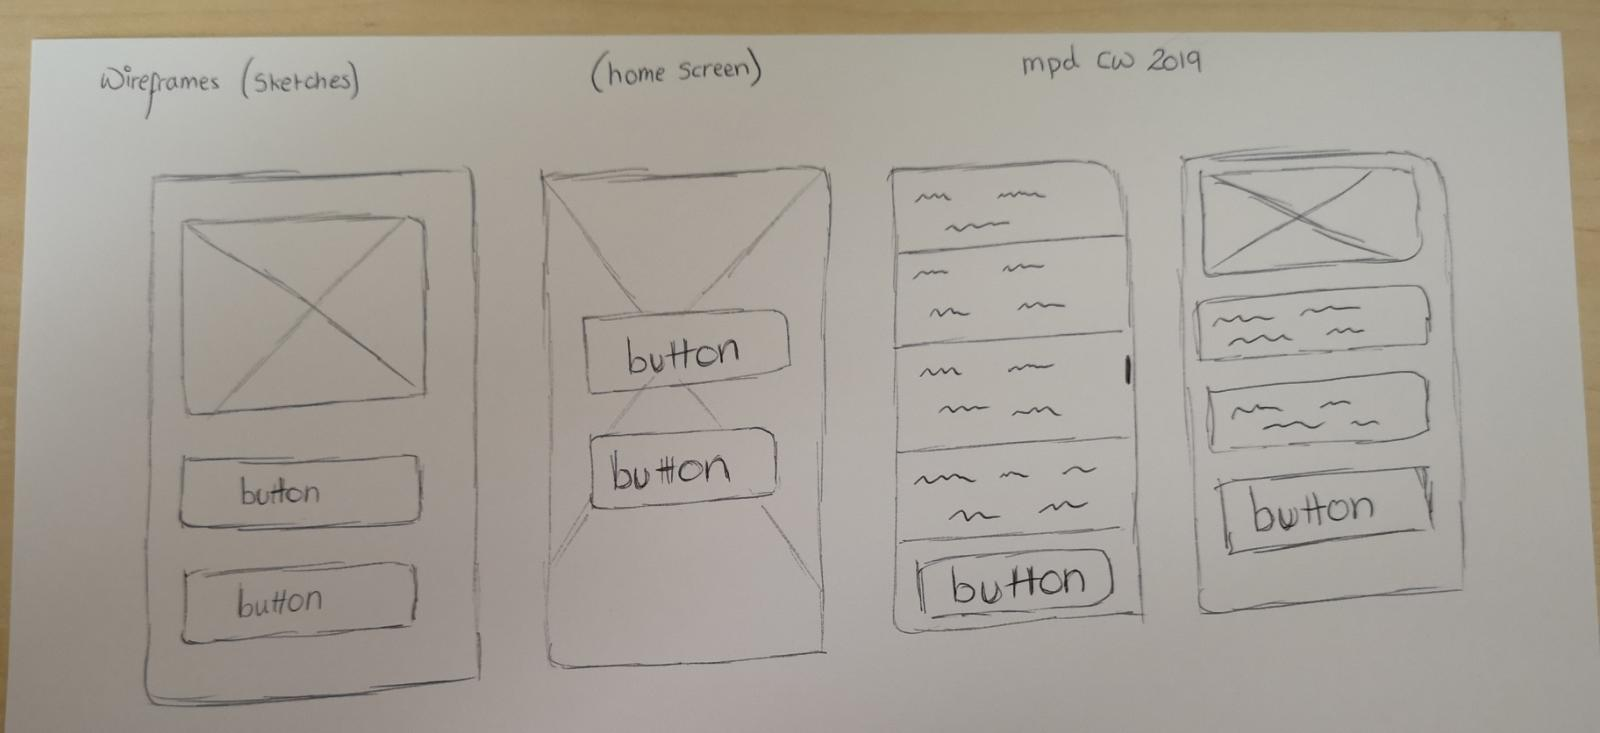 Wireframes (Sketches)
(home screen)
mpd CW 2019
button
button
button
button
button
button